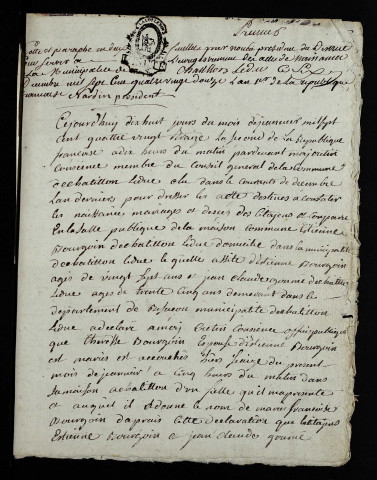 Premier
Cotte et paraphe en deux feuillets par nous président du District
pour servir à L'enregistrement des actes de naissances
La Municipalité de Chatillon Ledue
Decembre mil sept cent quatre vingt douze L'an 1er de la republique
francaise Nardin president
Cejourdhuy dix huit jours du mois dejeanvier mil sept
cent quatre vingt treize La seconde de La Republique
francaise a dix heurs du matin pardevant moi
membre du Conseil general de la Commune
dechatillon Ledue elu dans le courents de decembre
Lan dernier pour dresser les acte destines a constater
les naissance mariages et deces des Citoyens est comparu
En la salle publique de la maison commune Etienne
Bourgoin dechatillon Ledue domicilie dans la municipalité
dechatillon Ledue le quelle assité destienne Bourgoin
agés de vingt sept ans et jean claude gomme dechatillon
Ledue agés de trente cinq ans demeurant dans le
departement de municipalité dechatillon
Ledue a declaré amoij officier public
que theresse Bourgoin Epouse destienne Bourgoin
est mariés est accouchés hiers seize du present
mois de janvier a cinq heurs du matin dans
samaison a chatillon d'un felle qu'il ma presenté
et auquel il a donné le nom de marie francoise
Bourgoin daprais cette declaration que les citoyens
Estienne Bourgoin et jean claude gomme